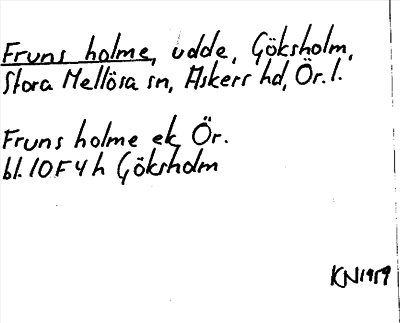 Fruns holme, udde, Göksholm,
Stora Mellösa sn, Askers hd, Ör. l.
Fruns holme ek, Ör.
bl. 10F4h Göksholm
KN1959